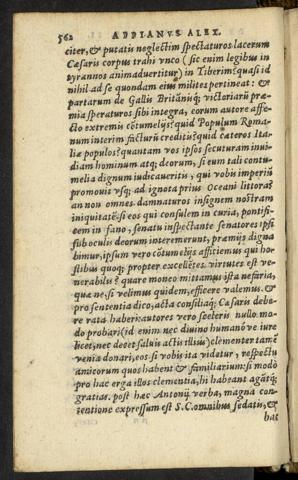 562 APPIANVS ALEX.
citer, & putatis neglectim spectaturos lacerum
Cæsaris corpus trahi vnco (sic enim legibus in
tyrannos animaduertitur) in Tiberim? quasi id
nihil ad se quondam eius milites pertineat: &
partarum de Gallis Britāniq́; victoriarū præ-
mia speraturos sibi integra, eorum autore affe-
cto extremis cōtumelijs? quid Populum Roma-
num interim facturū creditis? quid cæteros Ita-
liæ populos? quantam vos ipsos securturam inui-
diam hominum atq; deorum, si eum tali contu-
melia dignum iudicaueritis, qui vobis imperiū
promouit vsq; ad ignota prius Oceani littora?
an non omnes damnaturos insignem nostram
iniquitatē: si eos qui consulem in curia, pontifi-
cem in fano, senatu inspectante senatores ipsi
sub oculis deorum interemerunt, præmijs digna
bimur, ipsum vero cōtumelijs afficiemus qui ho-
stibus quoq; propter excellētes virtutes est ve-
nerabilis? quare moneo mittamus ista nefaria,
quæ ne si velimus quidem, efficere valemus. &
pro sententia dico, acta consiliaq́; Cæsaris debe-
re rata haberi: autores vero sceleris nullo mo-
do probari (id enim nec diuino humanóve iure
licet, nec decet saluis actis illius) clementer tamē
venia donari, eos, si vobis ita videtur, respectu
amicorum quos habent & familiarium: si modò
pro hac erga illos clementia, hi habeant agātq́;
gratias. post hac Antonij verba, magna con-
tentione expressum est S.C. omnibus sedatis, &
hac